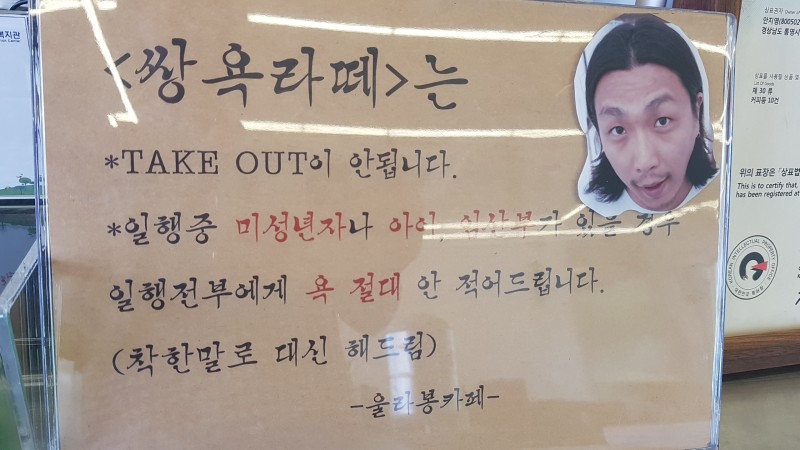 <쌍욕라떼>는
*TAKE OUT이 안됩니다.
*일행중 미성년자나 아이, 임산부가 있을 경우
일행전부에게 욕 절대 안 적어드립니다.
(착한말로 대신 해드림)
-울라봉카페-
안지영(800502
경상남도 통영시
제 30 류
커피등 10건
위의 표장은「상표법
This is to certify that,
has been registered at